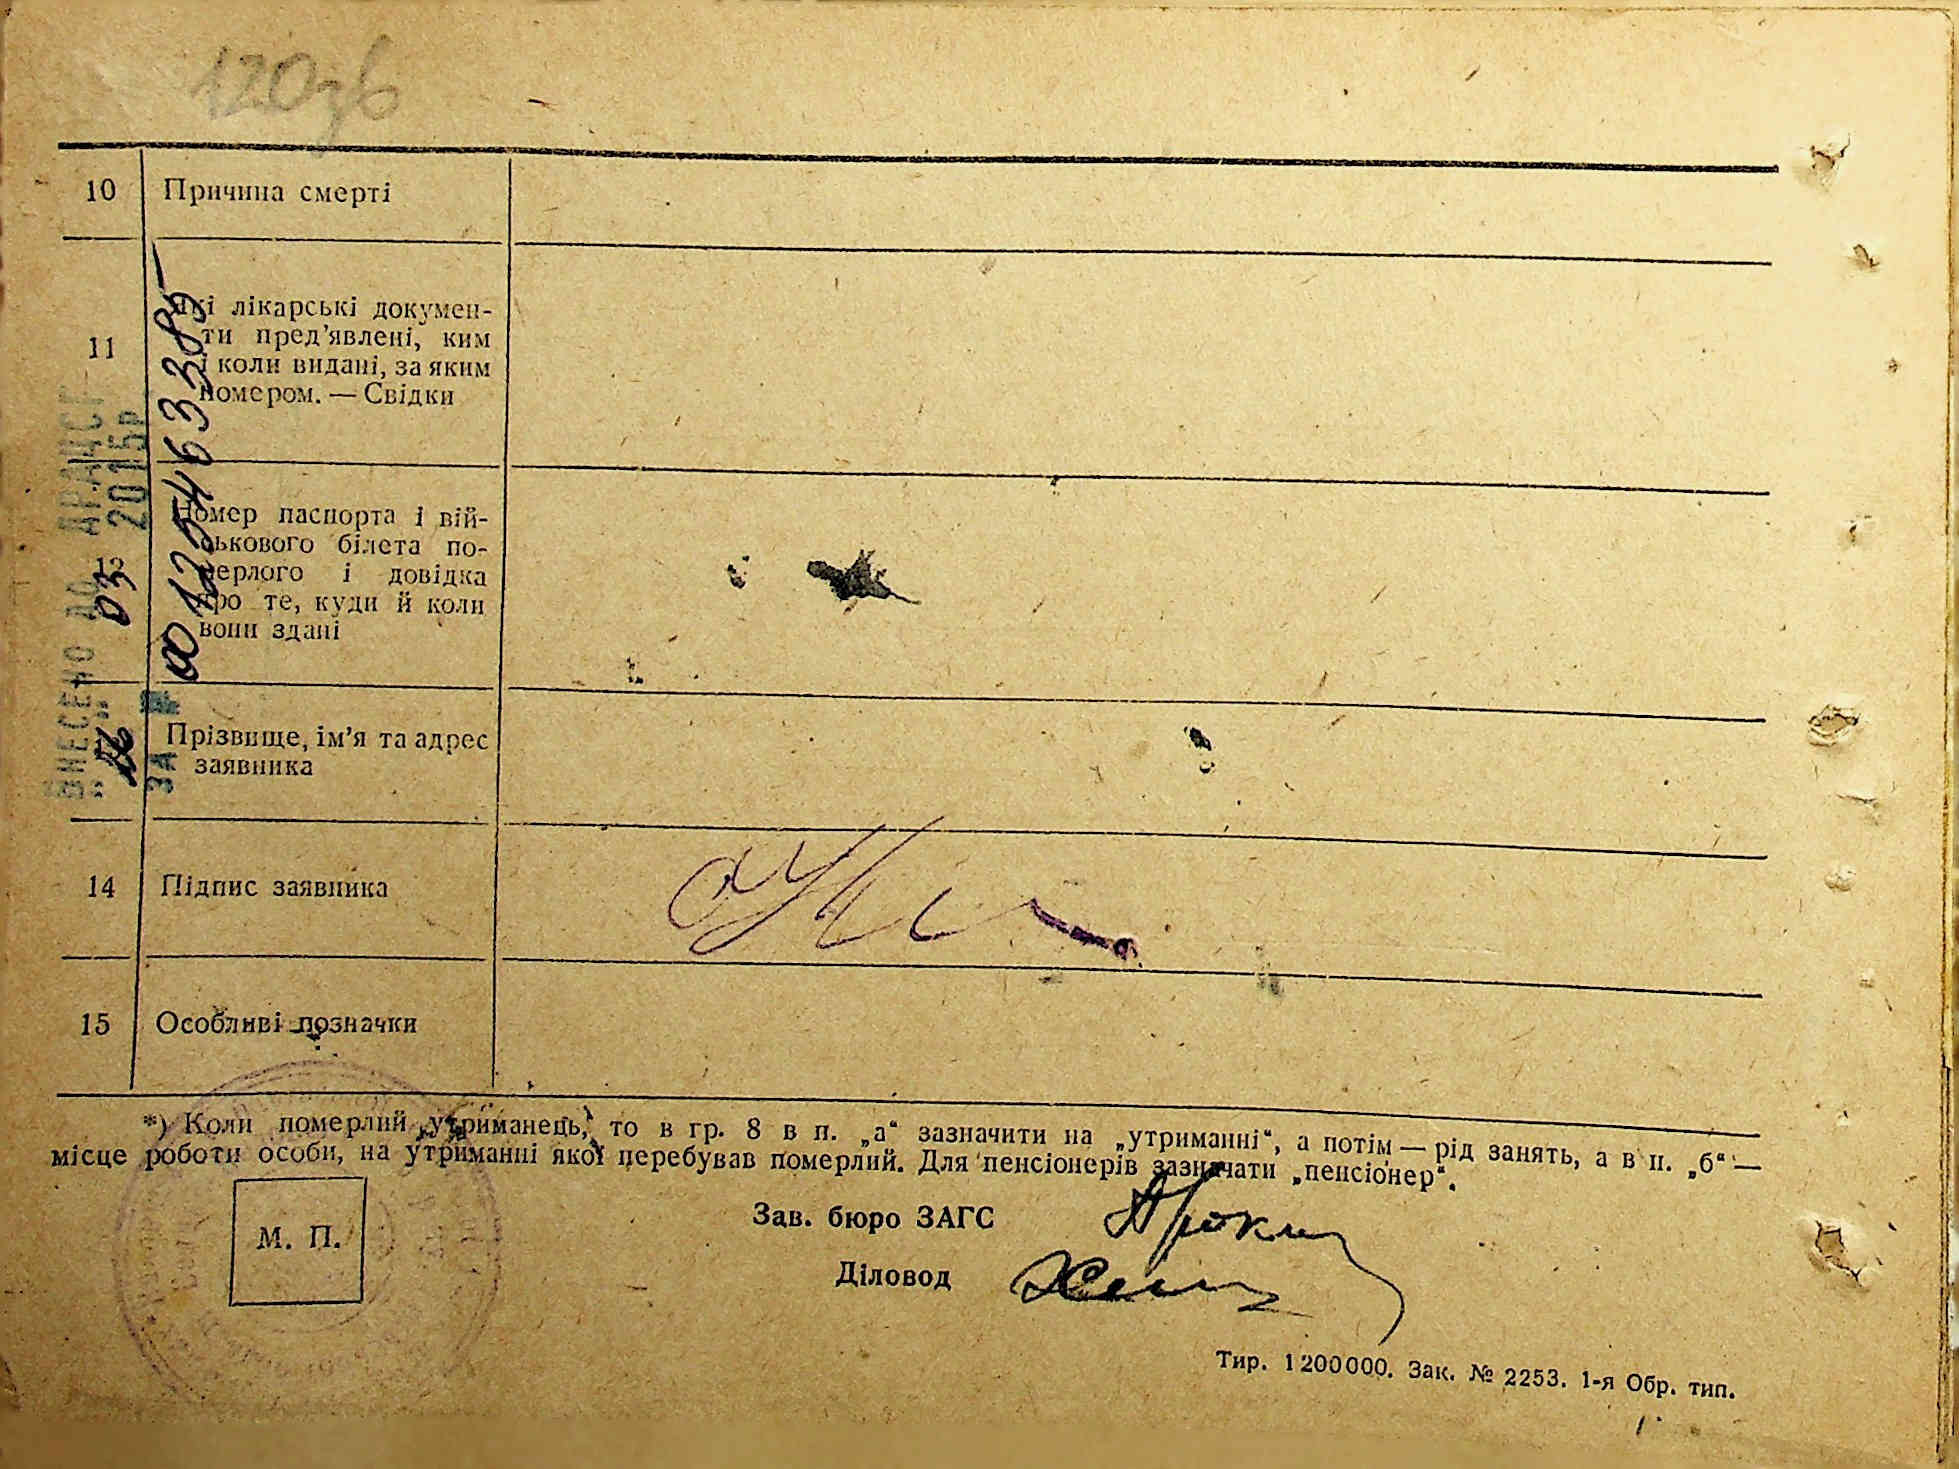 120зб
10 Причина смерті
11 Які лікарські докумен-
ти пред'явлені, ким
і коли видані, за яким
номером. — Свідки
Номер паспорта і вій-
ськового білета по-
мерлого і довідка
про те, куди й коли
вони здані
Прізвище, ім'я та адрес
заявника
14 Підпис заявника
15 Особливі позначки
ВНЕСЕНО ДО ДРАЦСГ
"26" 03 2015р
ЗА № 00125463385
*) Коли померлий „утриманець, то в гр. 8 в п. „а“ зазначити на „утриманні“, а потім — рід занять, а в п. „б“ —
місце роботи особи, на утриманні якої перебував померлий. Для пенсіонерів зазначати „пенсіонер“.
М. П.
Зав. бюро ЗАГС
Діловод
Тир. 1200000. Зак. № 2253. 1-я Обр. тип.